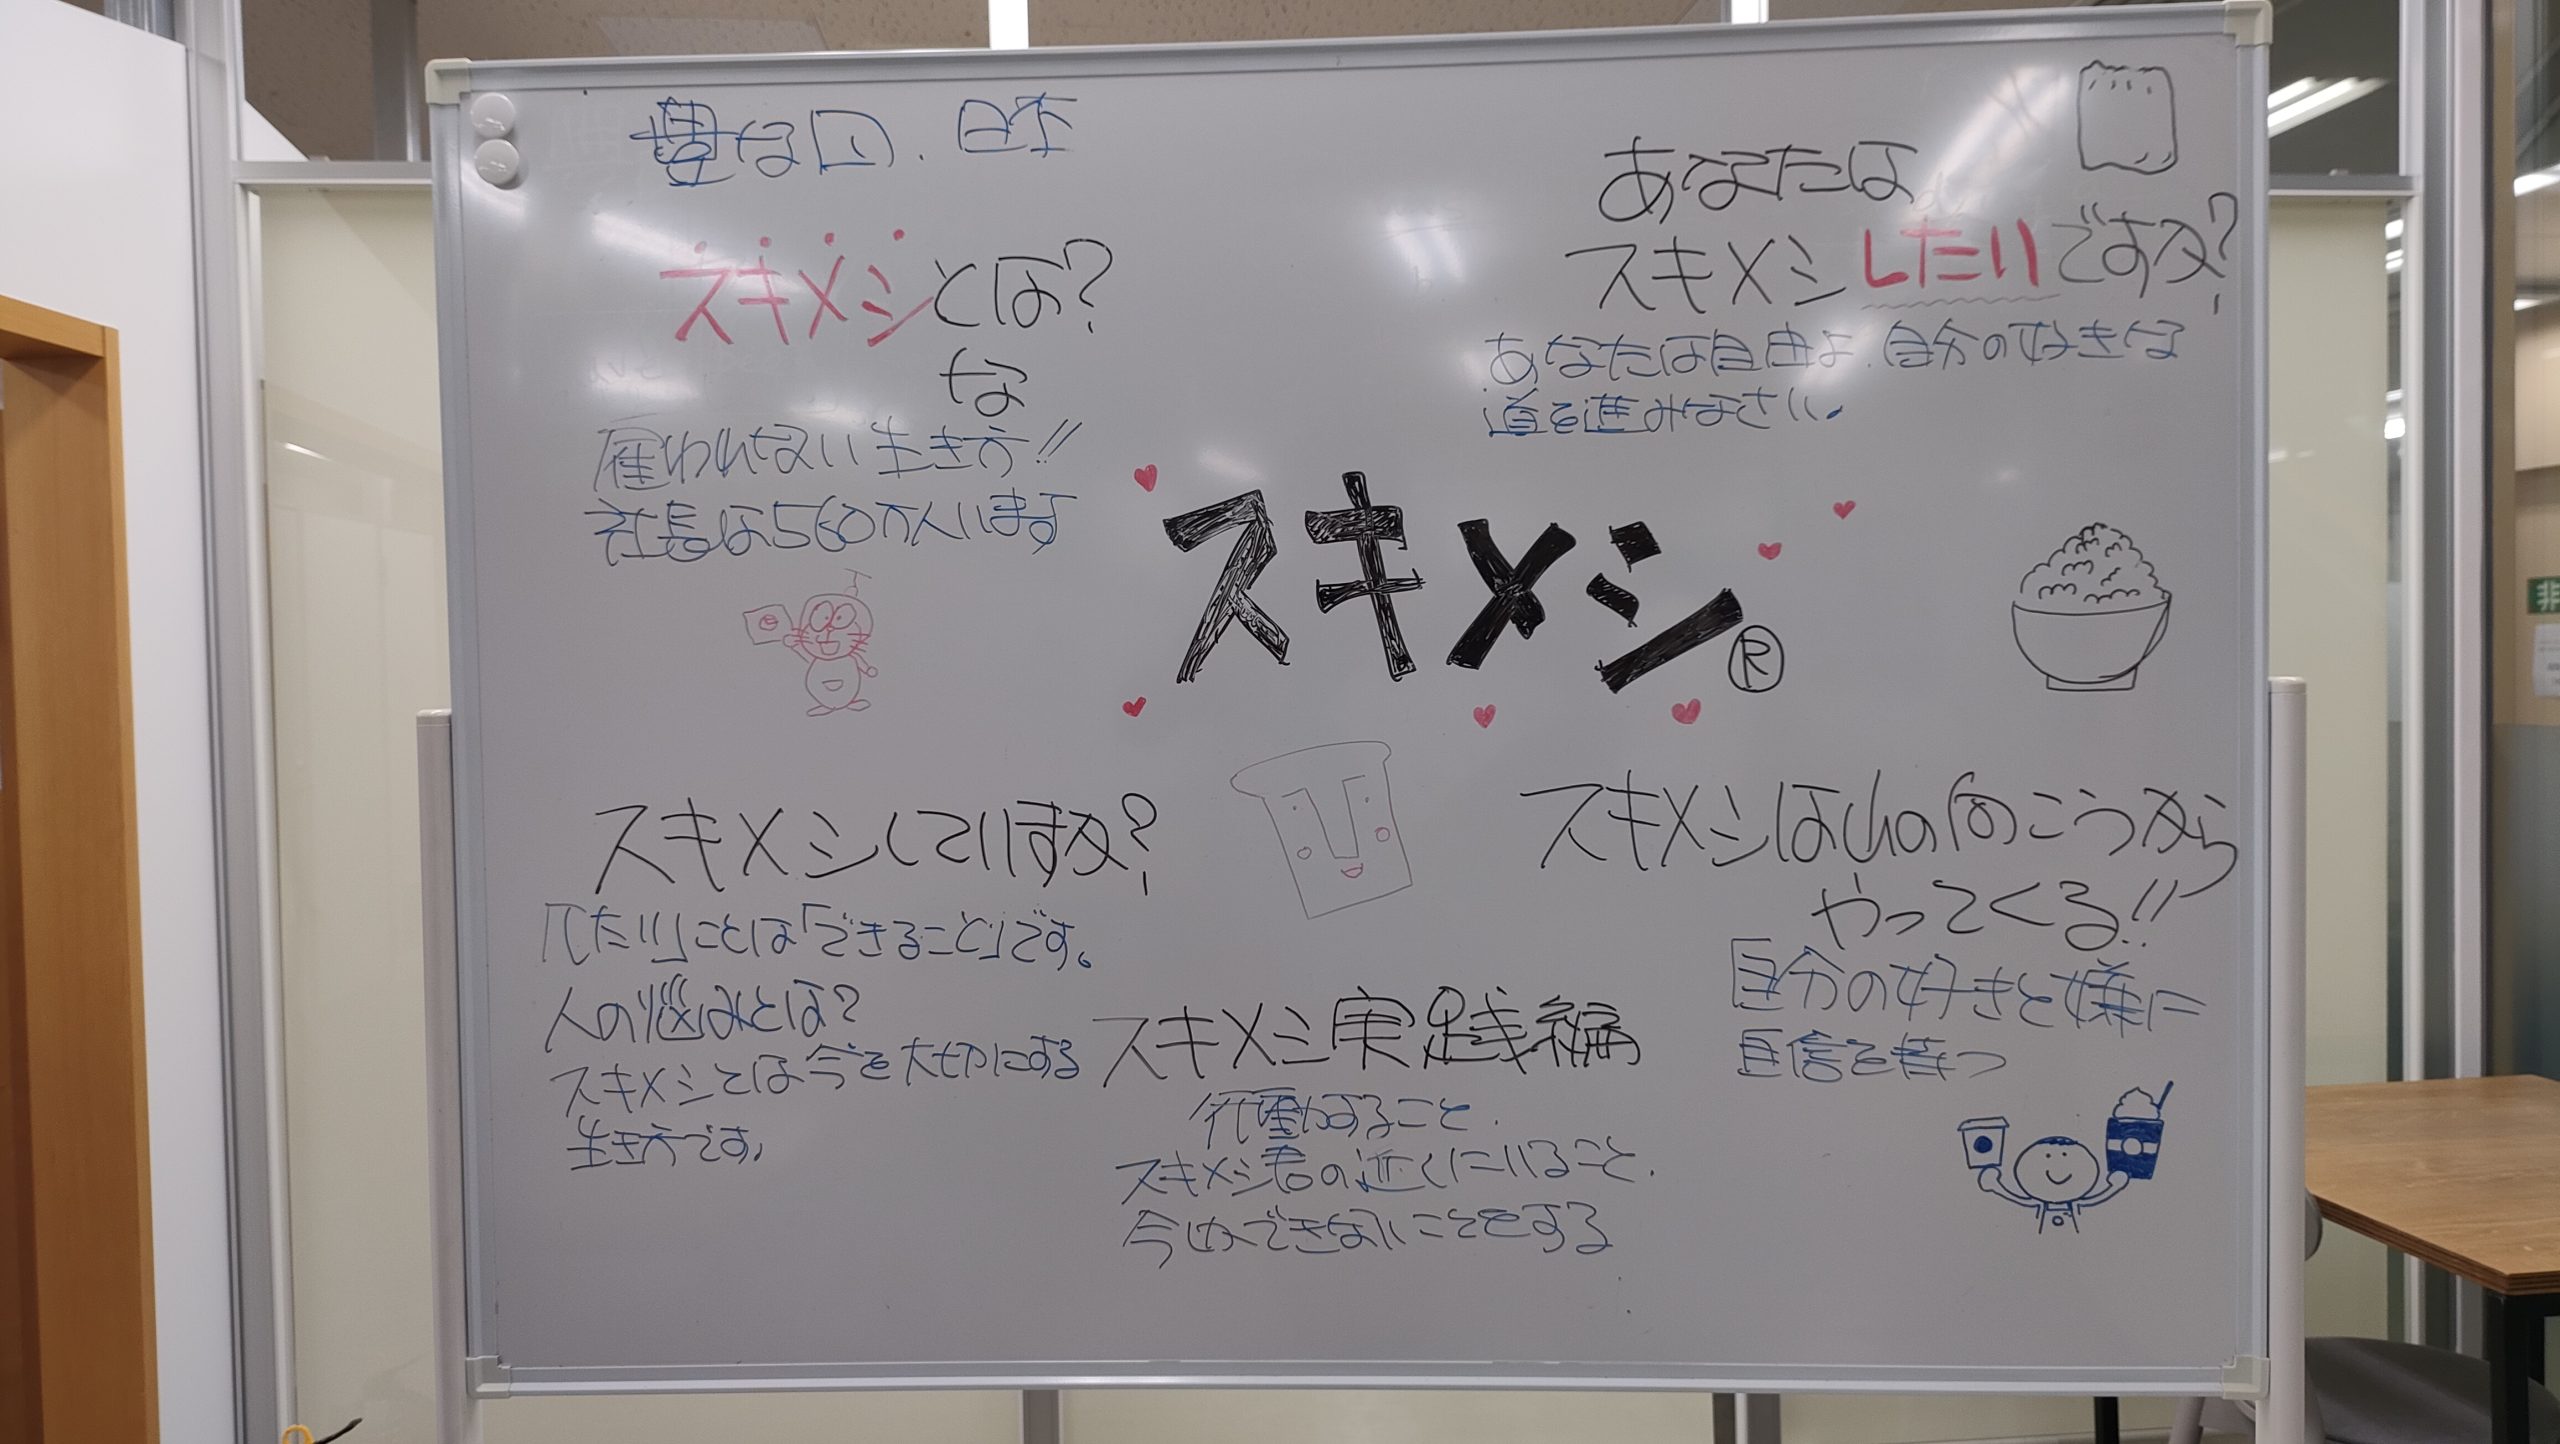 豊な国、日本
スキメシとは?
な
雇われない生き方!!
社長は560万人います
あなたは
スキメシしたいですか?
あなたは自由よ、自分の好きな
道を進みなさい。
スキメシ®
スキメシしていますか?
「したい」ことは「できること」です。
人の悩みとは?
スキメシとは今を大切にする
生き方です。
スキメシ実践編
行動すること、
スキメシ君の近くにいること、
今しかできないことをする
スキメシは山の向こうから
やってくる!!
自分の好きと嫌に
自信を持つ
非